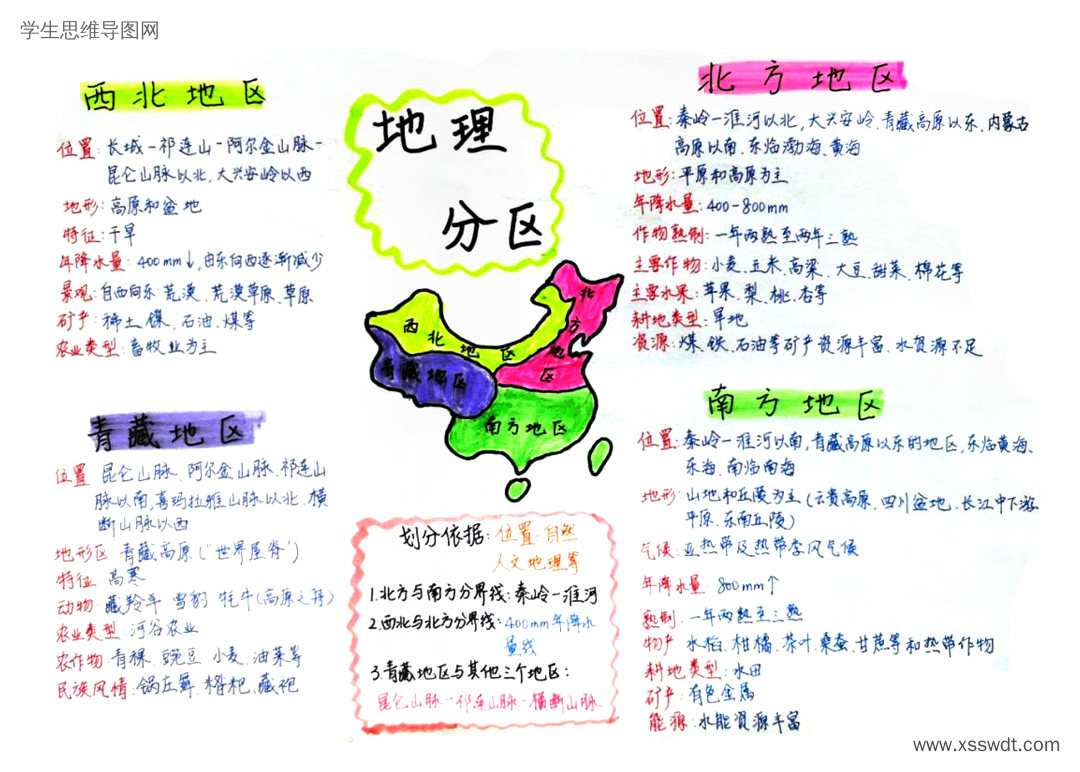 学生思维导图网
西北地区
位置:长城-祁连山-阿尔金山脉-
昆仑山脉以北,大兴安岭以西
地形:高原和盆地
特征:干旱
年降水量:400mm↓,由东向西逐渐减少
景观:自西向东:荒漠、荒漠草原、草原
矿产:稀土、镍、石油、煤等
农业类型:畜牧业为主
青藏地区
位置 昆仑山脉、阿尔金山脉、祁连山
脉以南,喜玛拉雅山脉以北、横
断山脉以西
地形区 青藏高原("世界屋脊")
特征:高寒
动物:藏羚羊 雪豹 牦牛(高原之舟)
农业类型 河谷农业
农作物:青稞、豌豆、小麦、油菜等
民族风情:锅庄舞、糌粑、藏袍
地理
分区
西北地区
北方地区
青藏地区
南方地区
划分依据:位置 自然
人文地理等
1.北方与南方分界线:秦岭-淮河
2.西北与北方分界线:400mm年降水
量线
3.青藏地区与其他三个地区:
昆仑山脉-祁连山脉-横断山脉
北方地区
位置:秦岭-淮河以北,大兴安岭、青藏高原以东,内蒙古
高原以南、东临渤海、黄海
地形:平原和高原为主
年降水量:400-800mm
作物熟制:一年两熟至两年三熟
主要作物:小麦、玉米、高粱、大豆、甜菜、棉花等
主要水果:苹果、梨、桃、杏等
耕地类型:旱地
资源:煤、铁、石油等矿产资源丰富、水资源不足
南方地区
位置:秦岭-淮河以南,青藏高原以东的地区,东临黄海、
东海、南临南海
地形:山地和丘陵为主(云贵高原、四川盆地、长江中下游
平原、东南丘陵)
气候:亚热带及热带季风气候
年降水量:800mm↑
熟制:一年两熟至三熟
物产 水稻、柑橘、茶叶、桑蚕、甘蔗等和热带作物
耕地类型:水田
矿产:有色金属
能源:水能资源丰富
www.xsswdt.com